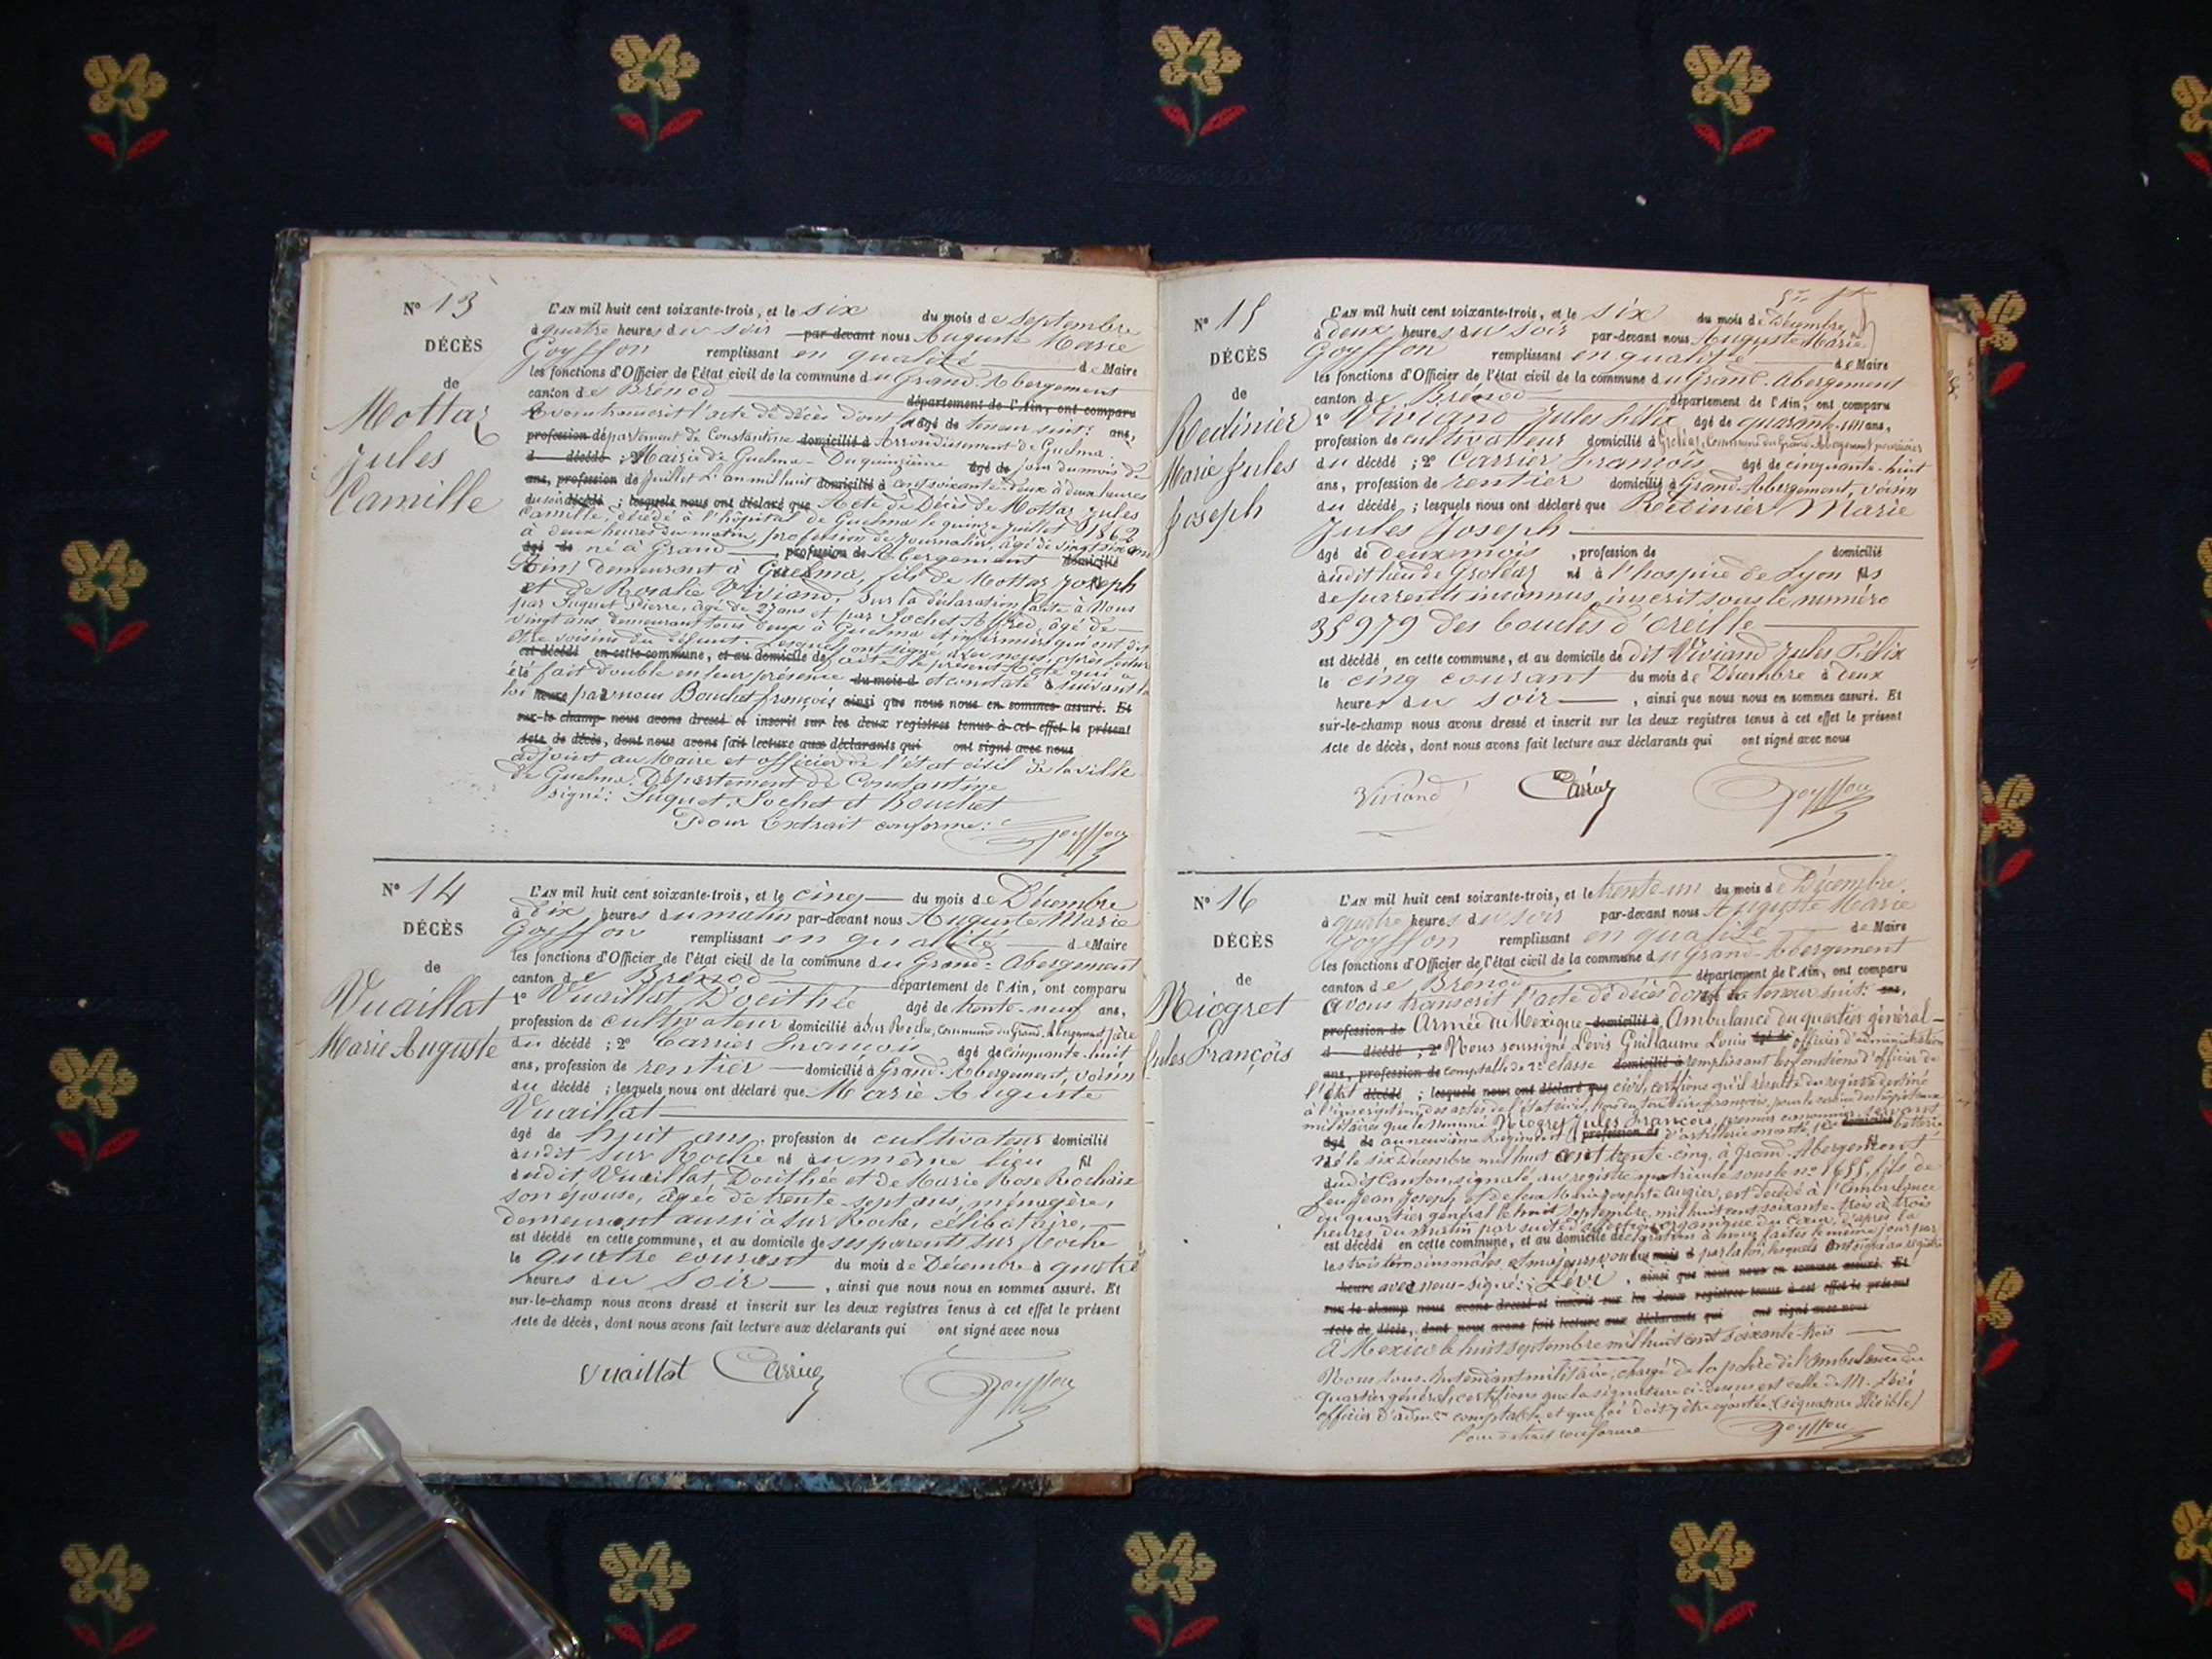 N° 13
DÉCÈS
de
Mottaz
Jules
Camille
L'AN mil huit cent soixante-trois, et le six du mois de Septembre
à quatre heures du soir par-devant nous Auguste Marie
Goyffon remplissant en qualité de Maire
les fonctions d'Officier de l'état civil de la commune du Grand-Abergement
canton de Brénod département de l'Ain, ont comparu
Avons transcrit l'acte de décès dont la âgé de teneur suit: ans,
profession département de Constantine domicilié à Arrondissement de Guelma.
d décédé ; 2° Mairie de Guelma - Du quinzième âgé de jour du mois de
ans, profession de Juillet L'an mil huit domicilié à cent soixante-deux à deux heures
du soir décédé ; lesquels nous ont déclaré que Acte de Décès de Mottaz Jules
Camille, décédé à l'hôpital de Guelma le quinze Juillet 1862
à deux heures du matin, profession de Journalier, âgé de vingt six ans
âgé de né à Grand profession de Abergement domicilié
(Ain) demeurant à Guelma, fils de Mottaz Joseph
et de Rosalie Viviand, Sur la déclaration faite à Nous
par Suquet Pierre, âgé de 27 ans et par Sochet Alfred, âgé de
vingt ans demeurant tous deux à Guelma et infirmiers qui ont dit
être voisins du défunt. Lesquels ont signé avec nous, après lecture
est décédé en cette commune, et au domicile de faite le présent Acte qui a
été fait double en leur présence du mois d et constaté à suivant la
loi heure par nous Bouchet françois ainsi que nous nous en sommes assuré. Et
sur-le-champ nous avons dressé et inscrit sur les deux registres tenus à cet effet le présent
Acte de décès, dont nous avons fait lecture aux déclarants qui ont signé avec nous
adjoint au Maire et officier de l'état civil de la ville
de Guelma. Département de Constantine
signé: Suquet, Sochet et Bouchet
Pour Extrait conforme: Goyffon
N° 14
DÉCÈS
de
Vuaillat
Marie Auguste
L'AN mil huit cent soixante-trois, et le cinq du mois de Décembre
à dix heures du matin par-devant nous Auguste Marie
Goyffon remplissant en qualité de Maire
les fonctions d'Officier de l'état civil de la commune du Grand-Abergement
canton de Brénod département de l'Ain, ont comparu
1° Vuaillat Doithée âgé de trente-neuf ans,
profession de cultivateur domicilié à Sur Roche, commune du Grand-Abergement père
du décédé ; 2° Carrier François âgé de cinquante-huit
ans, profession de rentier domicilié à Grand-Abergement, voisin
du décédé ; lesquels nous ont déclaré que Marie Auguste
Vuaillat
âgé de huit ans, profession de cultivateur domicilié
audit Sur Roche né au même lieu fil
dudit Vuaillat Doithée et de Marie Rose Rochaix
son épouse, âgée de trente-sept ans, ménagère,
demeurant aussi à Sur Roche, célibataire,
est décédé en cette commune, et au domicile de ses parents Sur Roche
le quatre courant du mois de Décembre à quatre
heures du soir , ainsi que nous nous en sommes assuré. Et
sur-le-champ nous avons dressé et inscrit sur les deux registres tenus à cet effet le présent
Acte de décès, dont nous avons fait lecture aux déclarants qui ont signé avec nous
Vuaillat Carrier Goyffon
N° 15
DÉCÈS
de
Redinier
Marie Jules
Joseph
L'AN mil huit cent soixante-trois, et le six du mois de Décembre
à deux heures du soir par-devant nous Auguste Marie
Goyffon remplissant en qualité de Maire
les fonctions d'Officier de l'état civil de la commune du Grand-Abergement
canton de Brénod département de l'Ain, ont comparu
1° Viviand Jules Félix âgé de quarante-un ans,
profession de cultivateur domicilié à Groléaz, commune du Grand-Abergement nourricier
du décédé ; 2° Carrier François âgé de cinquante-huit
ans, profession de rentier domicilié à Grand-Abergement, voisin
du décédé ; lesquels nous ont déclaré que Redinier Marie
Jules Joseph
âgé de deux mois , profession de domicilié
audit lieu de Groléaz né à l'hospice de Lyon fils
de parents inconnus, inscrit sous le numéro
35979 des boucles d'oreille
est décédé en cette commune, et au domicile de dit Viviand Jules Félix
le cinq courant du mois de Décembre à deux
heures du soir , ainsi que nous nous en sommes assuré. Et
sur-le-champ nous avons dressé et inscrit sur les deux registres tenus à cet effet le présent
Acte de décès, dont nous avons fait lecture aux déclarants qui ont signé avec nous
Viviand Carrier Goyffon
N° 16
DÉCÈS
de
Niogret
Jules François
L'AN mil huit cent soixante-trois, et le trente-un du mois de Décembre
à quatre heures du soir par-devant nous Auguste Marie
Goyffon remplissant en qualité de Maire
les fonctions d'Officier de l'état civil de la commune du Grand-Abergement
canton de Brénod département de l'Ain, ont comparu
Avons transcrit l'acte de décès dont la teneur suit: ans,
profession de Armée du Mexique domicilié à Ambulance du quartier général
d décédé ; 2° Nous soussigné Lévis Guillaume Louis âgé de officier d'administration
ans, profession de comptable de 2e classe domicilié à remplissant les fonctions d'officier de
l'état décédé ; lesquels nous ont déclaré que civil, certifions qu'il résulte du registre destiné
à l'inscription des actes de l'état civil, hors du territoire français, pour le service des hôpitaux
militaires que le nommé Niogret Jules François, premier canonnier servant
âgé de au neuvième Régiment profession de d'artillerie monté, domicilié batterie
né le six Décembre mil huit cent trente-cinq, à Grand-Abergement
dudit Canton, signalé au registre matricule sous le n° 1655, fils de
feu Jean Joseph et de feue Marie Josephte Augier, est décédé à l'ambulance
du quartier général le huit Septembre mil huit cent soixante-trois à trois
heures du matin par suite d'affection organique du cœur, d'après la
est décédé en cette commune, et au domicile déclaration à nous faite le même jour par
les trois témoins mâles et majeurs voulus mois d par la loi, lesquels ont signé au registre
heure avec nous-signé: Lévi , ainsi que nous nous en sommes assuré. Et
sur-le-champ nous avons dressé et inscrit sur les deux registres tenus à cet effet le présent
Acte de décès, dont nous avons fait lecture aux déclarants qui ont signé avec nous
à Mexico le huit Septembre mil huit cent soixante-trois
Nous Sous-Intendant militaire, chargé de la police de l'ambulance du
quartier général, certifions que la signature ci-dessus est celle de M. Lévi
officier d'adm.on comptable, et que foi doit y être ajoutée. (signature illisible)
Pour extrait conforme Goyffon